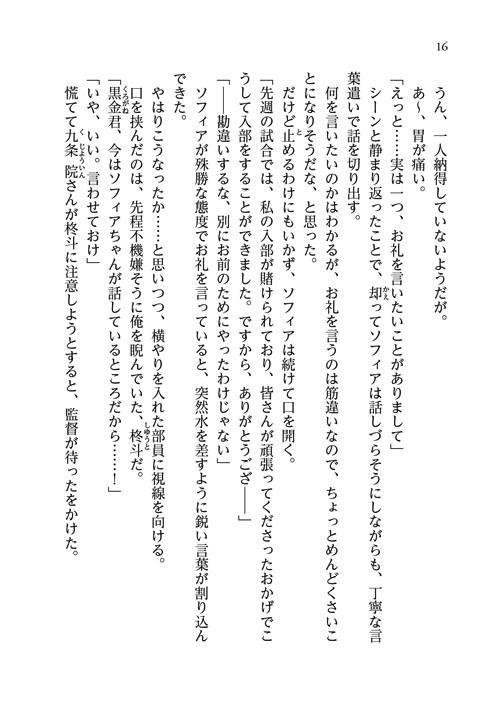 16
うん、一人納得していないようだが。
あ〜、胃が痛い。
「えっと……実は一つ、お礼を言いたいことがありまして」
シーンと静まり返ったことで、却ってソフィアは話しづらそうにしながらも、丁寧な言
葉遣いで話を切り出す。
何を言いたいのかはわかるが、お礼を言うのは筋違いなので、ちょっとめんどくさいこ
とになりそうだな、と思った。
だけど止めるわけにもいかず、ソフィアは続けて口を開く。
「先週の試合では、私の入部が賭けられており、皆さんが頑張ってくださったおかげでこ
うして入部をすることができました。ですから、ありがとうござ――」
「――勘違いするな、別にお前のためにやったわけじゃない」
ソフィアが殊勝な態度でお礼を言っていると、突然水を差すように鋭い言葉が割り込ん
できた。
やはりこうなったか……と思いつつ、横やりを入れた部員に視線を向ける。
口を挟んだのは、先程不機嫌そうに俺を睨んでいた、柊斗だ。
「黒金君、今はソフィアちゃんが話しているところだから……！」
「いや、いい。言わせておけ」
慌てて九条院さんが柊斗に注意しようとすると、監督が待ったをかけた。